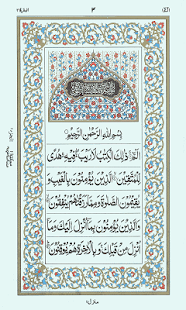 البقرة ٢
٣
بِسْمِ اللّٰهِ الرَّحْمٰنِ الرَّحِيْمِ
الٓمّٓ ذٰلِكَ الْكِتٰبُ لَا رَيْبَ فِيْهِ هُدًى
لِّلْمُتَّقِيْنَ الَّذِيْنَ يُؤْمِنُوْنَ بِالْغَيْبِ وَ
يُقِيْمُوْنَ الصَّلٰوةَ وَمِمَّا رَزَقْنٰهُمْ يُنْفِقُوْنَ
وَالَّذِيْنَ يُؤْمِنُوْنَ بِمَآ اُنْزِلَ اِلَيْكَ وَمَآ
اُنْزِلَ مِنْ قَبْلِكَ وَبِالْاٰخِرَةِ هُمْ يُوْقِنُوْنَ
منزل ١